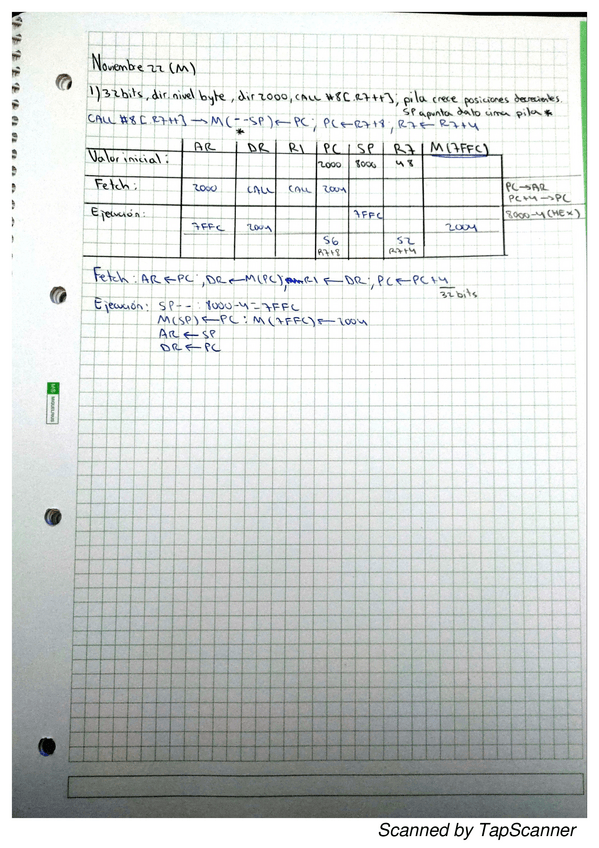 Novembre 22 (M)
1) 32 bits, dir. nivel byte, dir 2000, CALL #8[.R7++]; pila crece posiciones decrecientes.
SP apunta dato cima pila *
CALL #8[.R7++] → M(--SP) ← PC; PC ← R7+8; R7 ← R7+4
*
AR DR RI PC SP R7 M(7FFC)
Valor inicial: 2000 8000 48
Fetch: 2000 CALL CALL 2004 PC→AR
PC+4→PC
Ejecución: 7FFC 8000-4(HEX)
7FFC 2004 2004
56 52
R7+8 R7+4
Fetch: AR ← PC; DR ← M(PC); RI ← DR; PC ← PC+4
32 bits
Ejecución: SP-- : 8000-4=7FFC
M(SP) ← PC : M(7FFC) ← 2004
AR ← SP
DR ← PC
MIQUELRIUS
Scanned by TapScanner